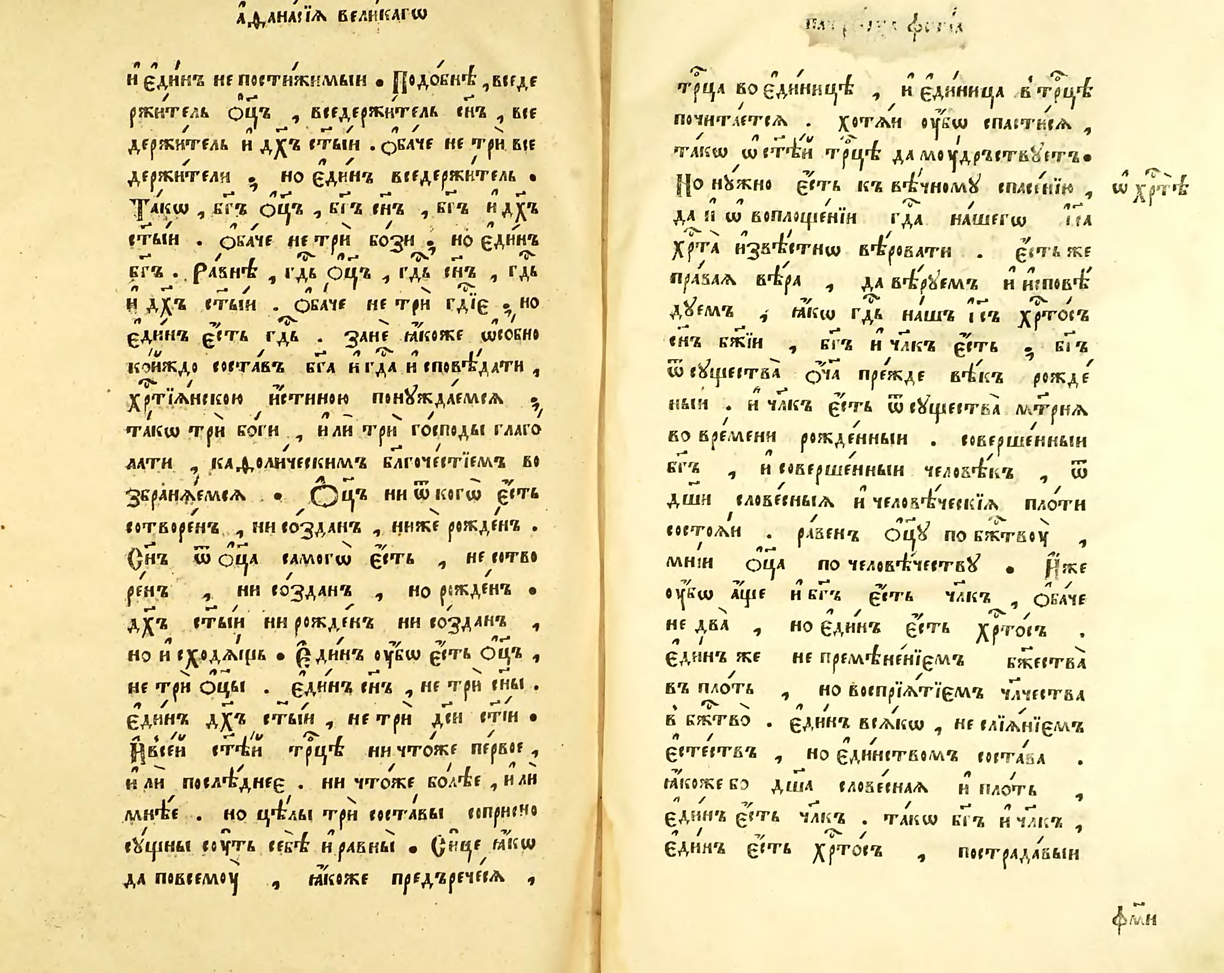 А҆ѳана́сїѧ вели́кагѡ
и҆ є҆ди́нъ не постижи́мый . Подо́бнѣ , все де
ржи́тель ѻ҆ц҃ъ , вседержи́тель сн҃ъ , все
держи́тель и҆ дх҃ъ ст҃ы́й . ѻ҆ба́че не трѝ все
держи́тели ; но є҆ди́нъ вседержи́тель .
Та́кѡ , бг҃ъ ѻ҆ц҃ъ , бг҃ъ сн҃ъ , бг҃ъ и҆ дх҃ъ
ст҃ы́й . ѻ҆ба́че не трѝ бо́зи ; но є҆ди́нъ
бг҃ъ . Ра́внѣ , гд҇ь ѻ҆ц҃ъ , гд҇ь сн҃ъ , гд҇ь
и҆ дх҃ъ ст҃ы́й . ѻ҆ба́че не трѝ гд҇їе ; но
є҆ди́нъ є҆́сть гд҇ь . занѐ ꙗ҆́коже ѡ҆со́бно
ко́йждо соста́въ бг҃а и҆ гд҇а и҆сповѣ́дати ,
хр҇тїѧ́нскою и҆́стиною понꙋжда́емсѧ ;
та́кѡ трѝ бо́ги , и҆лѝ трѝ го́споды глаго́
лати , каѳоли́ческимъ бл҃гоче́стїемъ во
збранѧ́емсѧ . Ѻ҆ц҃ъ ни ѿ когѡ̀ є҆́сть
сотворе́нъ , ни со́зданъ , нижѐ рожде́нъ .
Сн҃ъ ѿ ѻ҆ц҃а̀ самогѡ̀ є҆́сть , не сотво
ре́нъ , ни со́зданъ , но рожде́нъ .
дх҃ъ ст҃ы́й ни рожде́нъ ни со́зданъ ,
но и҆сходѧ́щь . Є҆ди́нъ оу҆́бѡ є҆́сть ѻ҆ц҃ъ ,
не трѝ ѻ҆ц҃ы̀ . є҆ди́нъ сн҃ъ , не трѝ сн҃ы .
є҆ди́нъ дх҃ъ ст҃ы́й , не трѝ дс҃и ст҃і́и .
И҆ всей ст҃ѣ́й тр҇цѣ ничто́же пе́рвое ,
и҆лѝ послѣ́днее . ничто́же бо́лѣе , и҆лѝ
мнѣ́е . но цѣ́лы трѝ соста́вы соприсно
сꙋ́щны сꙋ́ть себѣ̀ и҆ равны̀ . Си́це ꙗ҆́кѡ
да по всемоу̀ , ꙗ҆́коже предърече́сѧ ,
фс́тїа
тр҇ца во є҆ди́ницѣ , и҆ є҆ди́ница в̾ тр҇цѣ
почита́етсѧ . хотѧ́й оу҆́бѡ спасти́сѧ ,
та́кѡ ѡ҆ ст҃ѣ́й тр҇цѣ да моу́дръствꙋетъ .
Но нꙋ́жно є҆́сть къ вѣ́чномꙋ спасе́нїю ,
ѡ҆ хр҇тѣ̀
да и҆ ѡ҆ воплоще́нїи гд҇а на́шегѡ і҆с҃а
хр҇та̀ и҆звѣ́стнѡ вѣ́ровати . є҆́сть же
пра́ваѧ вѣ́ра , да вѣ́рꙋемъ и҆ и҆сповѣ́
дꙋемъ , ꙗ҆́кѡ гд҇ь на́шъ і҆с҃ъ хр҇то́съ
сн҃ъ бж҃їи , бг҃ъ и҆ чл҃къ є҆́сть ; бг҃ъ
ѿ сꙋщества̀ ѻ҆́ч҃а пре́жде вѣ́къ рожде́
ный . и҆ чл҃къ є҆́сть ѿ сꙋщества̀ мт҃рнѧ
во вре́мени рожде́нный . соверше́нный
бг҃ъ , и҆ соверше́нный человѣ́къ , ѿ
дш҃и слове́сныѧ и҆ человѣ́ческїѧ пло́ти
состоѧ́й . ра́венъ ѻ҆ц҃ꙋ̀ по бж҇твоу̀ ,
мні́й ѻ҆ц҃а̀ по человѣ́честву . И҆́же
оу҆́бѡ а҆́ще и҆ бг҃ъ є҆́сть чл҃къ , ѻ҆ба́че
не два̀ , но є҆ди́нъ є҆́сть хр҇то́съ .
є҆ди́нъ же не премѣне́нїемъ бж҃ества̀
въ пло́ть , но воспрїѧ́тїемъ чл҃чества
в̾ бж҇тво̀ . є҆ди́нъ всѧ́кѡ , не слїѧ́нїемъ
є҆сте́ствъ , но є҆ди́нствомъ соста́ва .
ꙗ҆́коже бо дш҃а слове́снаѧ и҆ пло́ть ,
є҆ди́нъ є҆́сть чл҃къ . та́кѡ бг҃ъ и҆ чл҃къ ,
є҆ди́нъ є҆́сть хр҇то́съ , пострада́вый
фм҃и